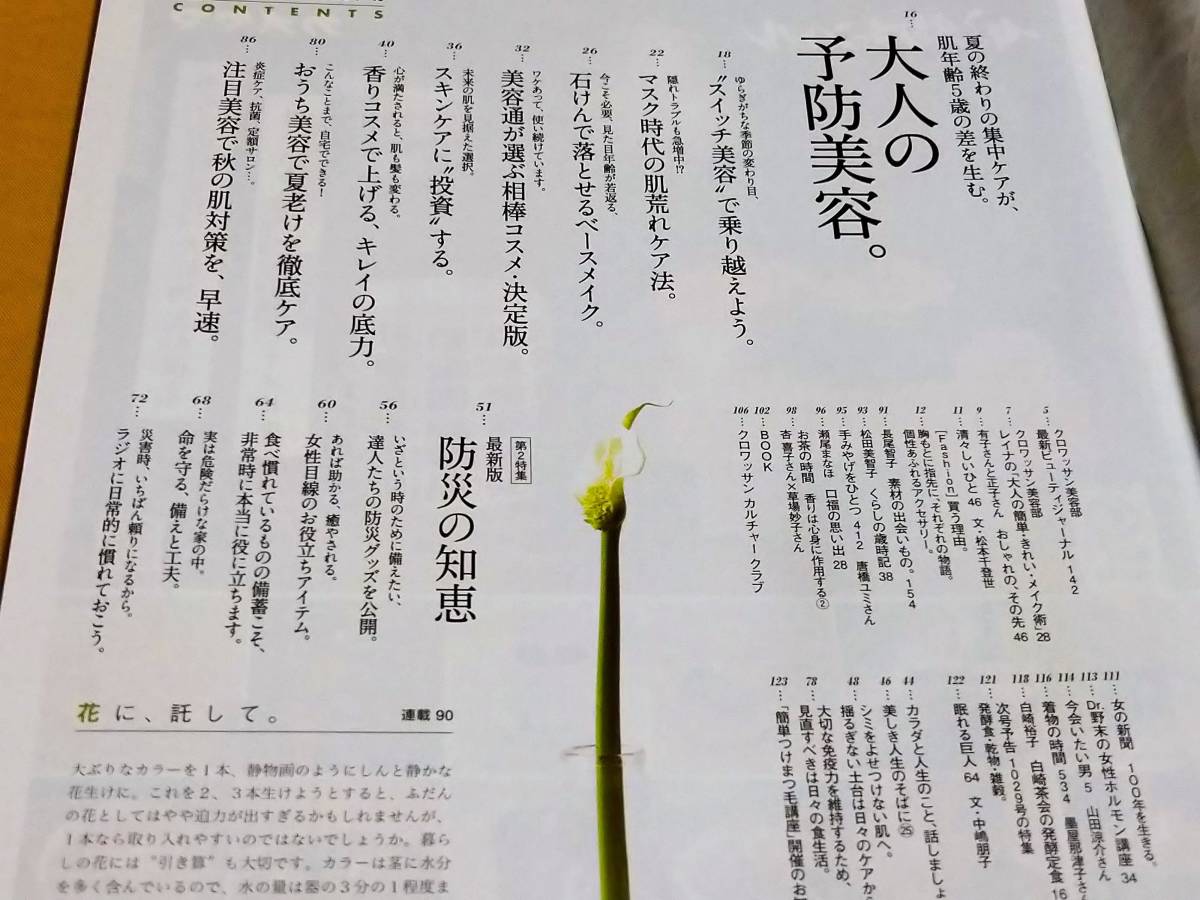 CONTENTS
16…
夏の終わりの集中ケアが、
肌年齢5歳の差を生む。
大人の
予防美容。
18…
ゆらぎがちな季節の変わり目、
“スイッチ美容”で乗り越えよう。
22…
隠れトラブルも急増中!?
マスク時代の肌荒れケア法。
26…
今こそ必要、見た目年齢が若返る、
石けんで落とせるベースメイク。
32…
ワケあって、使い続けています。
美容通が選ぶ相棒コスメ・決定版。
36…
未来の肌を見据えた選択。
スキンケアに“投資”する。
40…
心が満たされると、肌も髪も変わる。
香りコスメで上げる、キレイの底力。
80…
こんなことまで、自宅でできる!
おうち美容で夏老けを徹底ケア。
86…
炎症ケア、抗菌、定額サロン…。
注目美容で秋の肌対策を、早速。
5…クロワッサン美容部
最新ビューティジャーナル 142
7…クロワッサン美容部
レイナの、「大人の簡単・きれい・メイク術」28
9…有子さんと正子さん おしゃれの、その先 46
11…清々しいひと 46 文・松本千登世
12…[Fashion]買う理由。
胸もとに指先に、それぞれの物語。
個性あふれるアクセサリー。
91…長尾智子 素材の出会いもの。154
93…松田美智子 くらしの歳時記 38
95…手みやげをひとつ 412 唐橋ユミさん
96…瀬尾まなほ 口福の思い出 28
98…お茶の時間 香りは心身に作用する②
杏 喜子さん×草場妙子さん
102…BOOK
106…クロワッサン カルチャークラブ
51…
第2特集
最新版
防災の知恵
56…
いざという時のために備えたい、
達人たちの防災グッズを公開。
60…
あれば助かる、癒やされる。
女性目線のお役立ちアイテム。
64…
食べ慣れているものの備蓄こそ、
非常時に本当に役に立ちます。
68…
実は危険だらけな家の中。
命を守る、備えと工夫。
72…
災害時、いちばん頼りになるから。
ラジオに日常的に慣れておこう。
111…女の新聞 100年を生きる。
113…Dr.野末の女性ホルモン講座 34
114…今会いたい男 5 山田涼介さん
116…着物の時間 534 墨屋那津子さん
118…白崎裕子 白崎茶会の発酵定食 16
121…次号予告 1029号の特集
発酵食・乾物・雑穀。
122…眠れる巨人 64 文・中嶋朋子
44…カラダと人生のこと、話しましょ
46…美しき人生のそばに㉕
シミをよせつけない肌へ。
48…揺るぎない土台は日々のケアから
78…大切な免疫力を維持するため、
見直すべきは日々の食生活。
123…「簡単つけまつ毛講座」開催のお
花に、託して。
連載 90
大ぶりなカラーを1本、静物画のようにしんと静かな
花生けに。これを2、3本生けようとすると、ふだん
の花としてはやや迫力が出すぎるかもしれませんが、
1本なら取り入れやすいのではないでしょうか。暮ら
しの花には“引き算”も大切です。カラーは茎に水分
を多く含んでいるので、水の量は器の3分の1程度ま